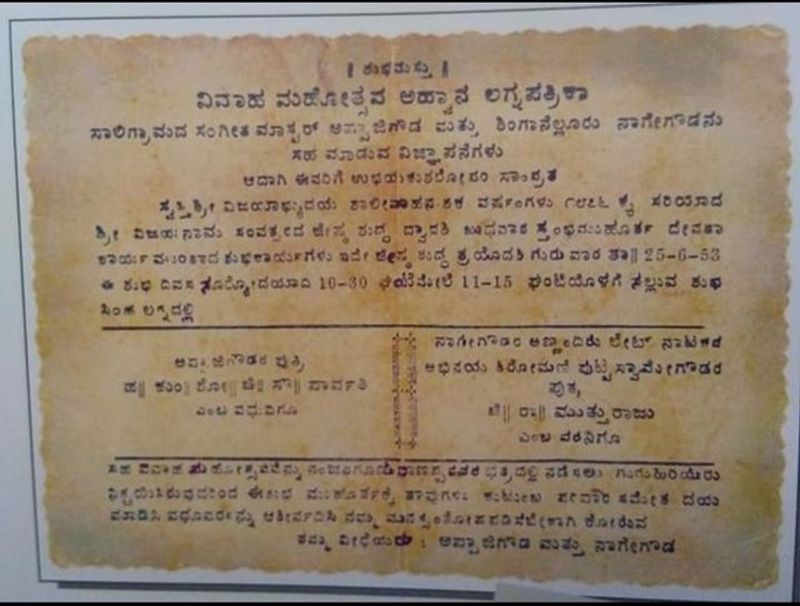 ॥ ಶುಭಮಸ್ತು ॥
ವಿವಾಹ ಮಹೋತ್ಸವ ಅಹ್ವಾನ ಲಗ್ನಪತ್ರಿಕಾ
ಸಾಲಿಗ್ರಾಮದ ಸಂಗೀತ ಮಾಸ್ಟರ್ ಅಪ್ಪಾಜಿಗೌಡ ಮತ್ತು ಶಿಂಗಾನೆಲ್ಲೂರು ನಾಗೇಗೌಡನು
ಸಹ ಮಾಡುವ ವಿಜ್ಞಾಪನೆಗಳು
ಆದಾಗಿ ಈವರಿಗೆ ಉಭಯಕುಶಲೋಪರಿ ಸಾಂಪ್ರತ
ಸ್ವಸ್ತಿಶ್ರೀ ವಿಜಯಾಭ್ಯುದಯ ಶಾಲೀವಾಹನ ಶಕ ವರ್ಷಂಗಳು ೧೮೭೬ ಕ್ಕೆ ಸರಿಯಾದ
ಶ್ರೀ ವಿಜಯನಾಮ ಸಂವತ್ಸರದ ಜೇಷ್ಠ ಶುದ್ಧ ದ್ವಾದಶಿ ಬುಧವಾರ ಸ್ತಂಭಮುಹೂರ್ತ ದೇವತಾ
ಕಾರ್ಯ ಮುಂತಾದ ಶುಭಕಾರ್ಯಗಳು ಇದೇ ಜೇಷ್ಠ ಶುದ್ಧ ತ್ರಯೋದಶಿ ಗುರುವಾರ ತಾ॥ 25-6-53
ಈ ಶುಭ ದಿವಸ ಸೂರ್ಯೋದಯಾದಿ 10-30 ಘಂಟೆಮೇಲೆ 11-15 ಘಂಟೆಯೊಳಗೆ ಸಲ್ಲುವ ಶುಭ
ಸಿಂಹ ಲಗ್ನದಲ್ಲಿ
ಅಪ್ಪಾಜಿಗೌಡರ ಪುತ್ರಿ
ಚಿ॥ ಸೌ॥ ಪಾರ್ವತಿ
ಎಂಬ ವಧುವಿಗೂ
ನಾಗೇಗೌಡರ ಅಣ್ಣಂದಿರು ಲೇಟ್ ನಾಟಕದ
ಅಭಿನಯ ಶಿರೋಮಣಿ ಪುಟ್ಟಸ್ವಾಮೀಗೌಡರ
ಪುತ್ರ
ಚಿ॥ ರಾ॥ ಮುತ್ತುರಾಜು
ಎಂಬ ವರನಿಗೂ
ಸಹ ವಿವಾಹ ಮಹೋತ್ಸವವನ್ನು ನಂಜನಗೂಡು ಛತ್ರದಲ್ಲಿ ನಡೆಸಲು ಗುರುಹಿರಿಯರು
ನಿಶ್ಚಯಿಸಿರುವುದರಿಂದ ಈ ಶುಭ ಮುಹೂರ್ತಕ್ಕೆ ತಾವುಗಳು ಕುಟುಂಬ ಪರಿವಾರ ಸಮೇತ ದಯ
ಮಾಡಿಸಿ ವಧೂವರರನ್ನು ಆಶೀರ್ವದಿಸಿ ನಮ್ಮ ಮನಸ್ಸಂತೋಷಪಡಿಸಬೇಕಾಗಿ ಕೋರುವ
ತಮ್ಮ ವಿಧೇಯರು : ಅಪ್ಪಾಜಿಗೌಡ ಮತ್ತು ನಾಗೇಗೌಡ